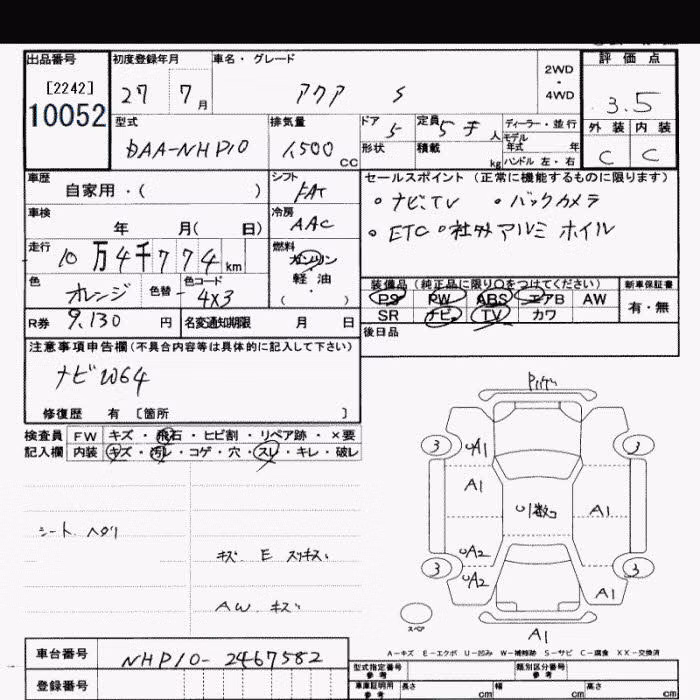 出品番号
[2242]
10052
初度登録年月
27 7月
車名・グレード
アクア S
2WD
・
4WD
評価点
3.5
外装 内装
C C
型式
DAA-NHP10
排気量
1,500 CC
ドア 5
形状
定員 5 人
積載 kg
ディーラー・並行
モデル
年式 年
ハンドル 左・右
車歴
自家用・( )
シフト
FAT
車検
年 月( 日)
冷房
AAC
走行
10万4千774km
燃料
ガソリン
軽油
( ・ )
色
オレンジ
色替
色コード
4X3
R券 9,130 円
名変通知期限 月 日
セールスポイント (正常に機能するものに限ります)
・ナビ、TV ・バックカメラ
・ETC ・社外アルミホイル
装備品 (純正品に限り〇をつけてください)
PS PW ABS エアB AW
SR ナビ TV カワ
新車保証書
有・無
後日品
注意事項申告欄(不具合内容等は具体的に記入して下さい)
ナビW64
修復歴 有 〔箇所 〕
検査員
記入欄
FW キズ・飛石・ヒビ割・リペア跡・×要
内装 キズ・汚レ・コゲ・穴・スレ・キレ・破レ
シート ヘタリ
キズ E スリキズ
AW キズ
3 UA1 3
A1
U1数コ
A1
UA2
3 UA2 3
A1
A1
スペア
A-キズ E-エクボ U-凹み W-補修跡 S-サビ C-腐食 XX-交換済
車台番号
NHP10-2467582
登録番号
型式指定番号
参考
類別区分番号
参考
車庫証明用
参考
長さ cm
幅 cm
高さ cm